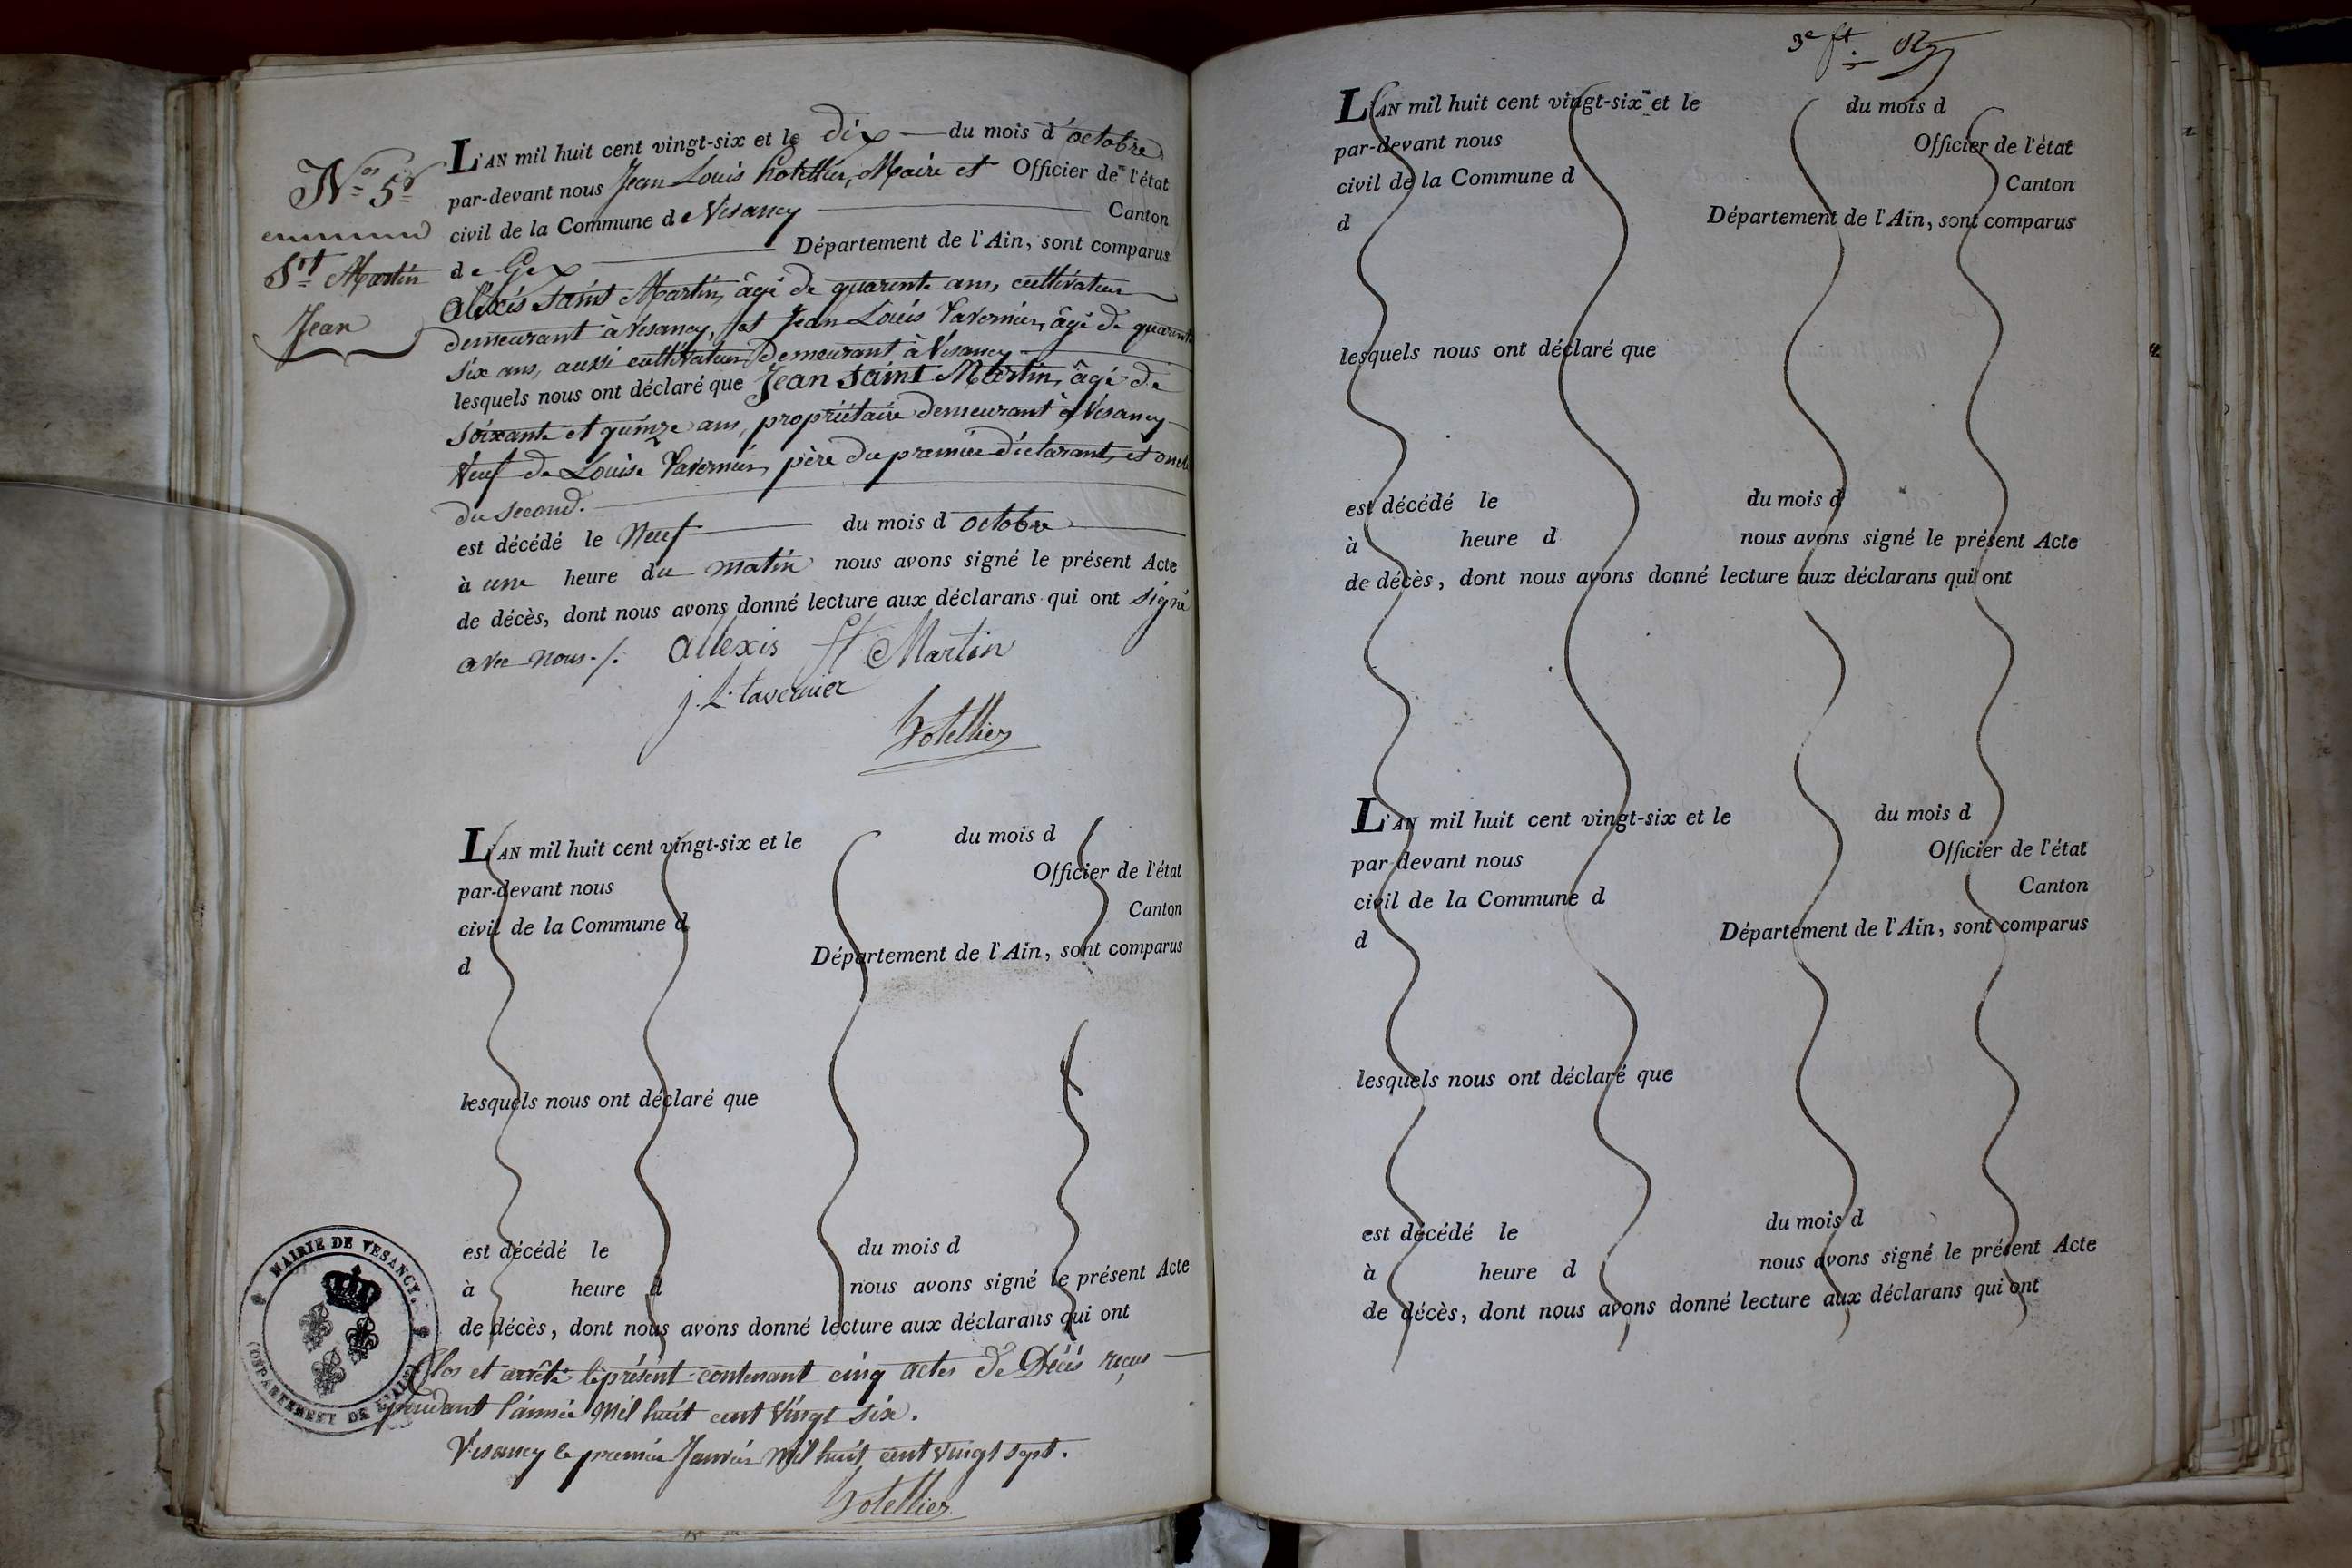 Nos 5
St Martin
Jean
L'AN mil huit cent vingt-six et le dix du mois d'octobre
par-devant nous Jean Louis hotellier, Maire et Officier de l'état
civil de la Commune de Vesancy Canton
de Gex Département de l'Ain, sont comparus
Alexis saint Martin, âgé de quarente ans, cultivateur
demeurant à Vesancy, et Jean Louis Tavernier, âgé de quarente
six ans, aussi cultivateur demeurant à Vesancy
lesquels nous ont déclaré que Jean saint Martin, âgé de
soixante et quinze ans, propriétaire demeurant à Vesancy
Veuf de Louise Tavernier, père du premier déclarant, et oncle
du second.
est décédé le neuf du mois d octobre
à une heure du matin nous avons signé le présent Acte
de décès, dont nous avons donné lecture aux déclarans qui ont signé
avec nous ./.
allexis st Martin
j. L. tavernier
hotellier
L'AN mil huit cent vingt-six et le du mois d
par-devant nous Officier de l'état
civil de la Commune d Canton
d Département de l'Ain, sont comparus
lesquels nous ont déclaré que
est décédé le du mois d
à heure d nous avons signé le présent Acte
de décès, dont nous avons donné lecture aux déclarans qui ont
MAIRIE DE VESANCY.
DEPARTEMENT DE L'AIN
Clos et arrêté le présent contenant cinq actes de Décès reçus
pendant l'année mil huit cent vingt six.
Vesancy le premier Janvier mil huit cent vingt sept.
hotellier
3e ft.
L'AN mil huit cent vingt-six et le du mois d
par-devant nous Officier de l'état
civil de la Commune d Canton
d Département de l'Ain, sont comparus
lesquels nous ont déclaré que
est décédé le du mois d
à heure d nous avons signé le présent Acte
de décès, dont nous avons donné lecture aux déclarans qui ont
L'AN mil huit cent vingt-six et le du mois d
par devant nous Officier de l'état
civil de la Commune d Canton
d Département de l'Ain, sont comparus
lesquels nous ont déclaré que
est décédé le du mois d
à heure d nous avons signé le présent Acte
de décès, dont nous avons donné lecture aux déclarans qui ont